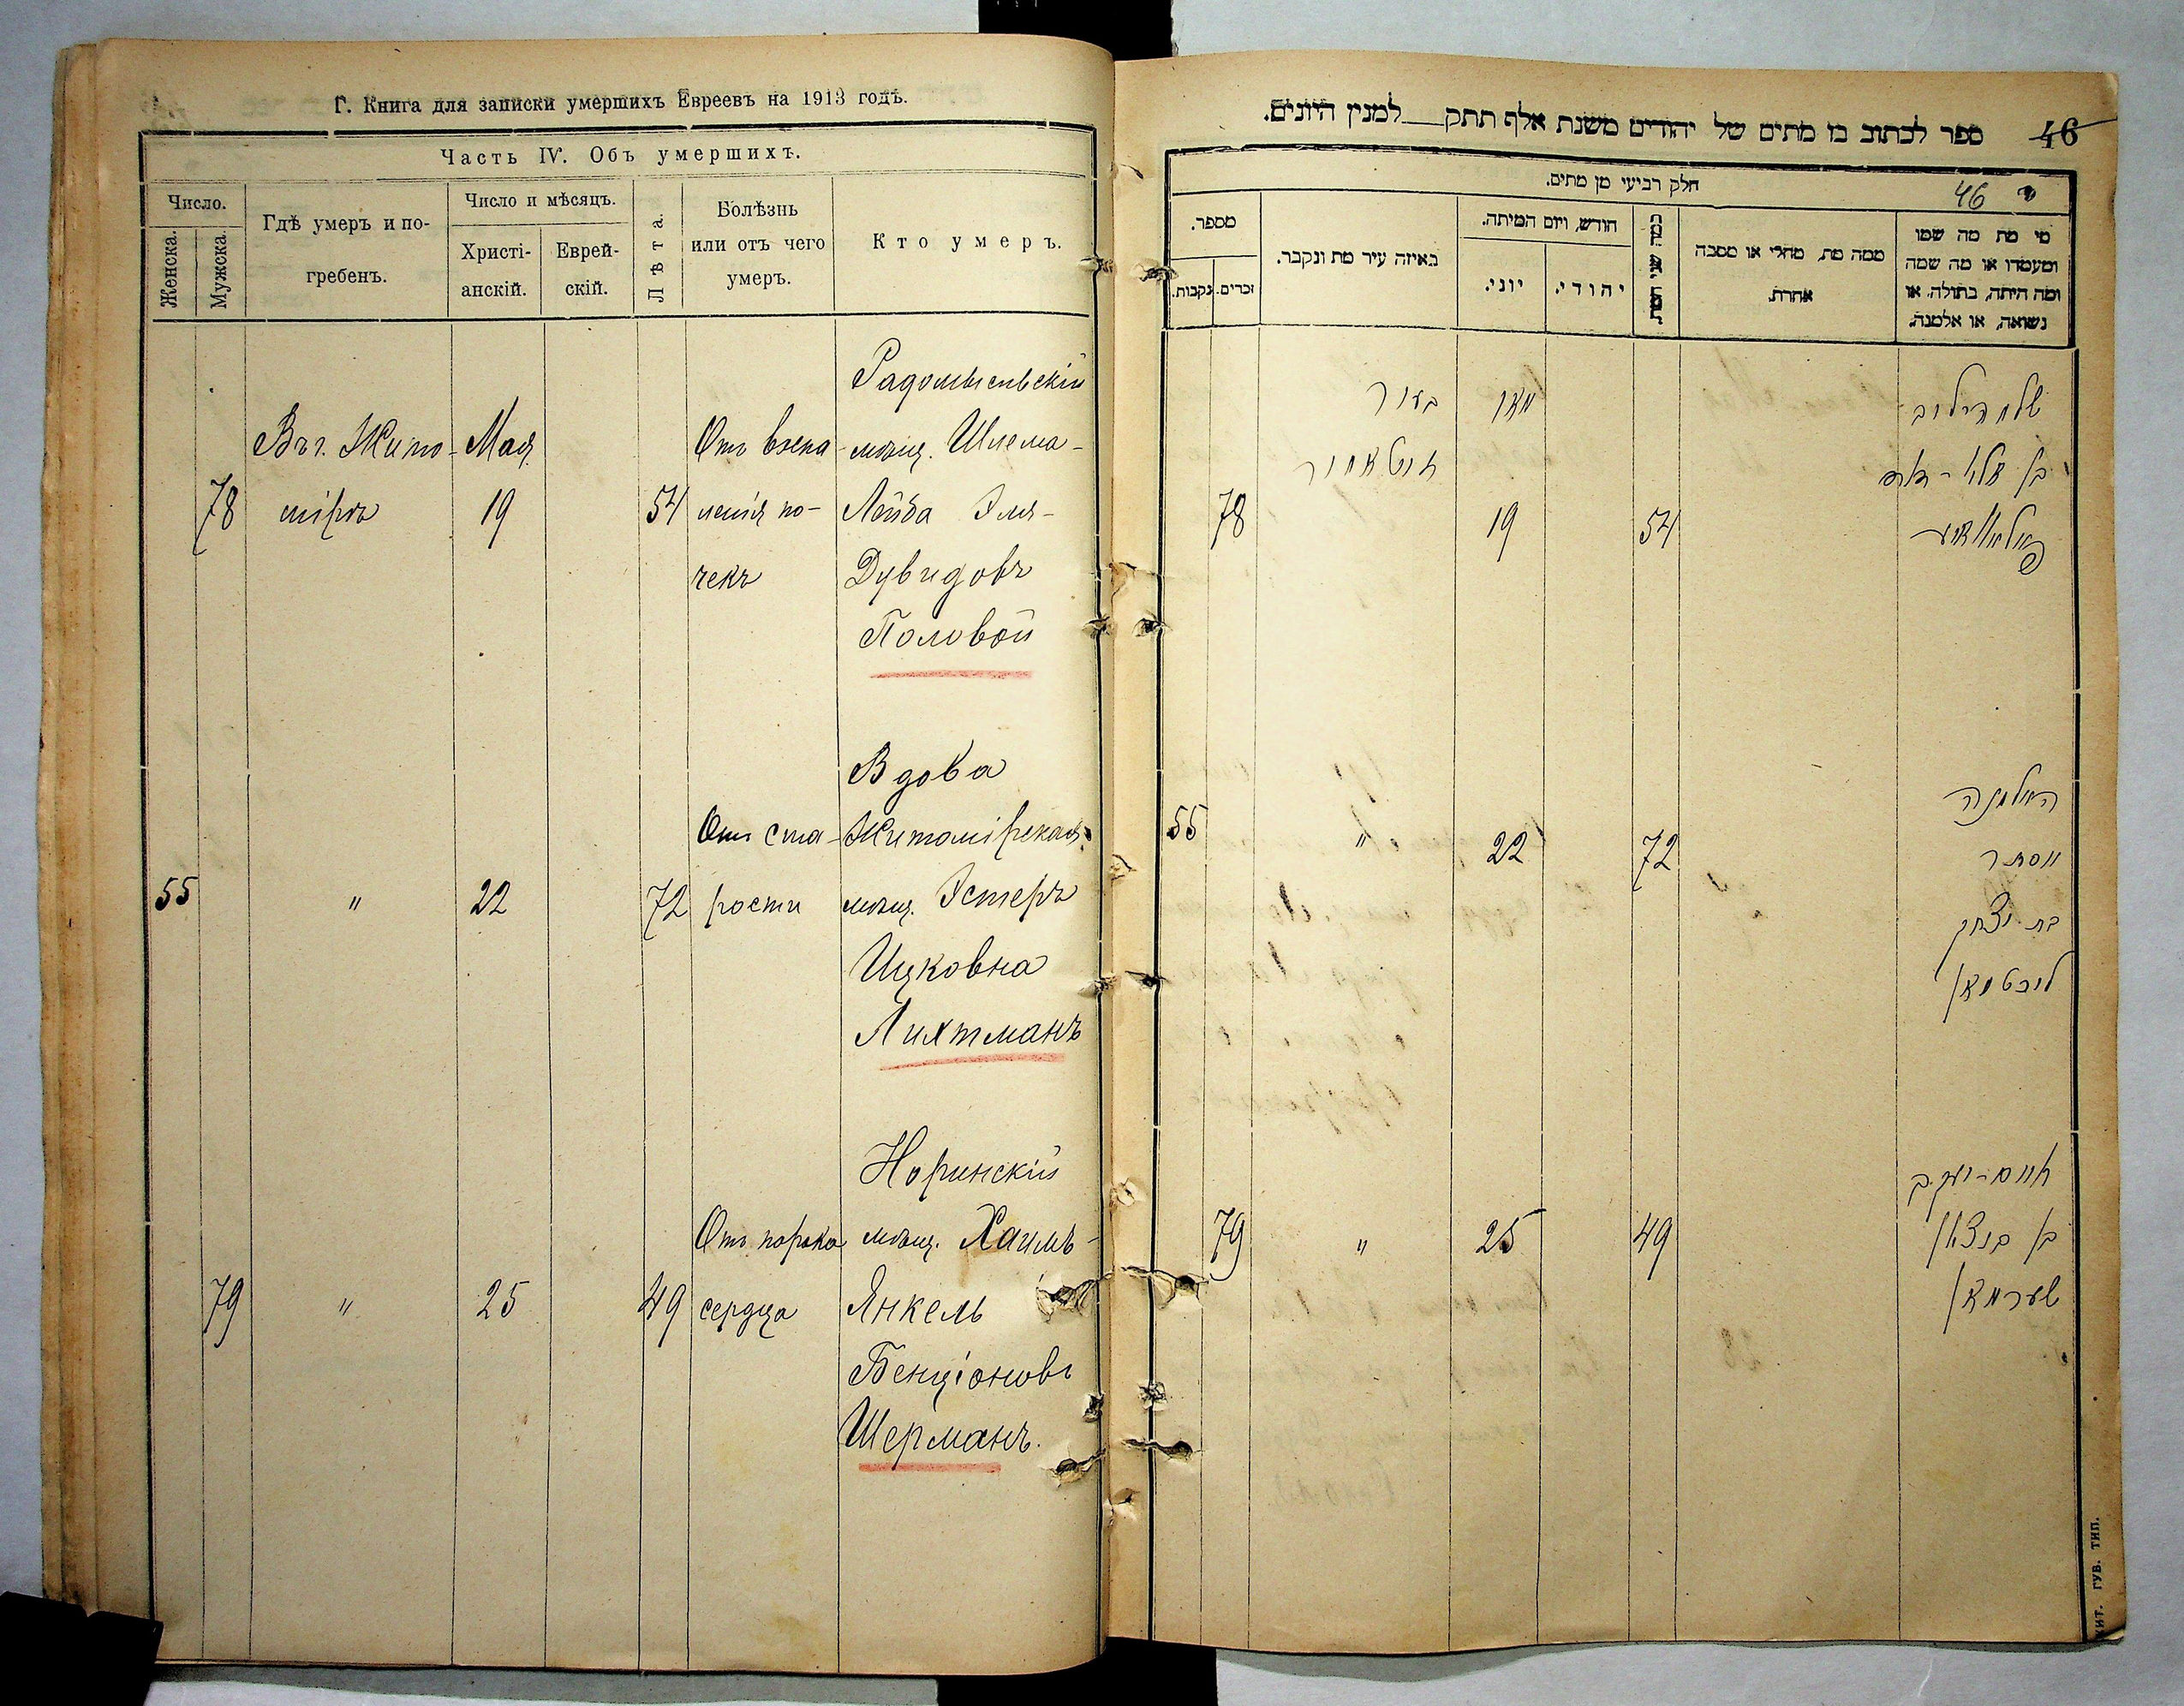 Г. Книга для записки умершихъ Евреевъ на 1913 годъ.
Часть IV. Объ умершихъ.
Число.
Женска.
Мужска.
Гдѣ умеръ и по-
гребенъ.
Число и мѣсяцъ.
Христі-
анскій.
Еврей-
скій.
Лѣта.
Болѣзнь
или отъ чего
умеръ.
Кто умеръ.
78
Въ г. Жито-
мірѣ
Мая
19
54
Отъ воспа-
ленія по-
чекъ
Радомысльскій
мѣщ. Шлема-
Лейба Эля-
Дувидовъ
Половой
55
"
22
72
Отъ ста-
рости
Вдова
Житомірская
мѣщ. Эстеръ
Ицковна
Лихтманъ
79
"
25
49
Отъ порока
сердца
Норинскій
мѣщ. Хаимъ-
Янкель
Бенціоновъ
Шерманъ.
46
ספר לכתוב בו מתים של יהודים משנת אלף תתק למנין היונים.
חלק רביעי מן מתים.
46
מספר.
נקבות.
זכרים.
באיזה עיר מת ונקבר.
חודש, ויום המיתה.
יוני.
יהודי.
כמה שני המת
ממה מת, מחלי או מסבה
אחרת.
מי מת מה שמו
ומעמדו או מה שמה
ומה היתה, בתולה או
נשואה, או אלמנה.
78
בעיר
זיטאמיר
מאי
19
54
שלמה ליב
בן אלי-דוד
פאלאוואיע
55
"
22
72
האלמנה
אסתר
בת יצחק
ליכטמאן
79
"
25
49
חיים-יעקב
בן בנציון
שערמאן
ЖИТ. ГУБ. ТИП.